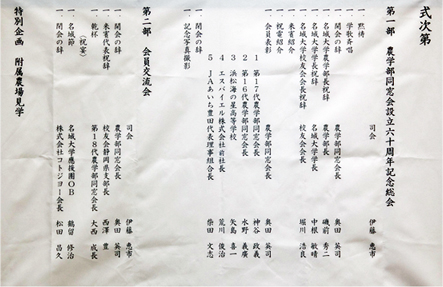 式次第
第一部 農学部同窓会設立六十周年記念総会
司会 伊藤 恵市
一 黙祷
一 学歌斉唱
一 開会の辞 農学部同窓会長 奥田 英司
一 名城大学農学部長祝辞 農学部長 磯前 秀二
一 名城大学学長祝辞 名城大学学長 中根 敏晴
一 名城大学校友会会長祝辞 校友会長 堀川 浩良
一 来賓紹介
一 祝電紹介
一 会員表彰
1 第17代農学部同窓会長 神谷 政義
2 第16代農学部同窓会長 水野 義廣
3 浜松海の星高等学校 矢島 喜一
4 エスパイエル株式会社前社長 荒川 俊治
5 JAあいち豊田代表理事組合長 柴田 文志
一 閉会の辞 農学部同窓会長 奥田 英司
一 記念写真撮影
第二部 会員交流会
司会 伊藤 恵市
一 開会の辞 農学部同窓会長 奥田 英司
一 来賓代表祝辞 校友会静岡県支部長 西澤 豊
一 乾杯 第18代農学部同窓会長 大西 成長
(祝宴)
一 名城節 名城大学応援団OB 鶴留 修治
一 閉会の辞 株式会社コトジヨー会長 松田 昌久
特別企画 附属農場見学